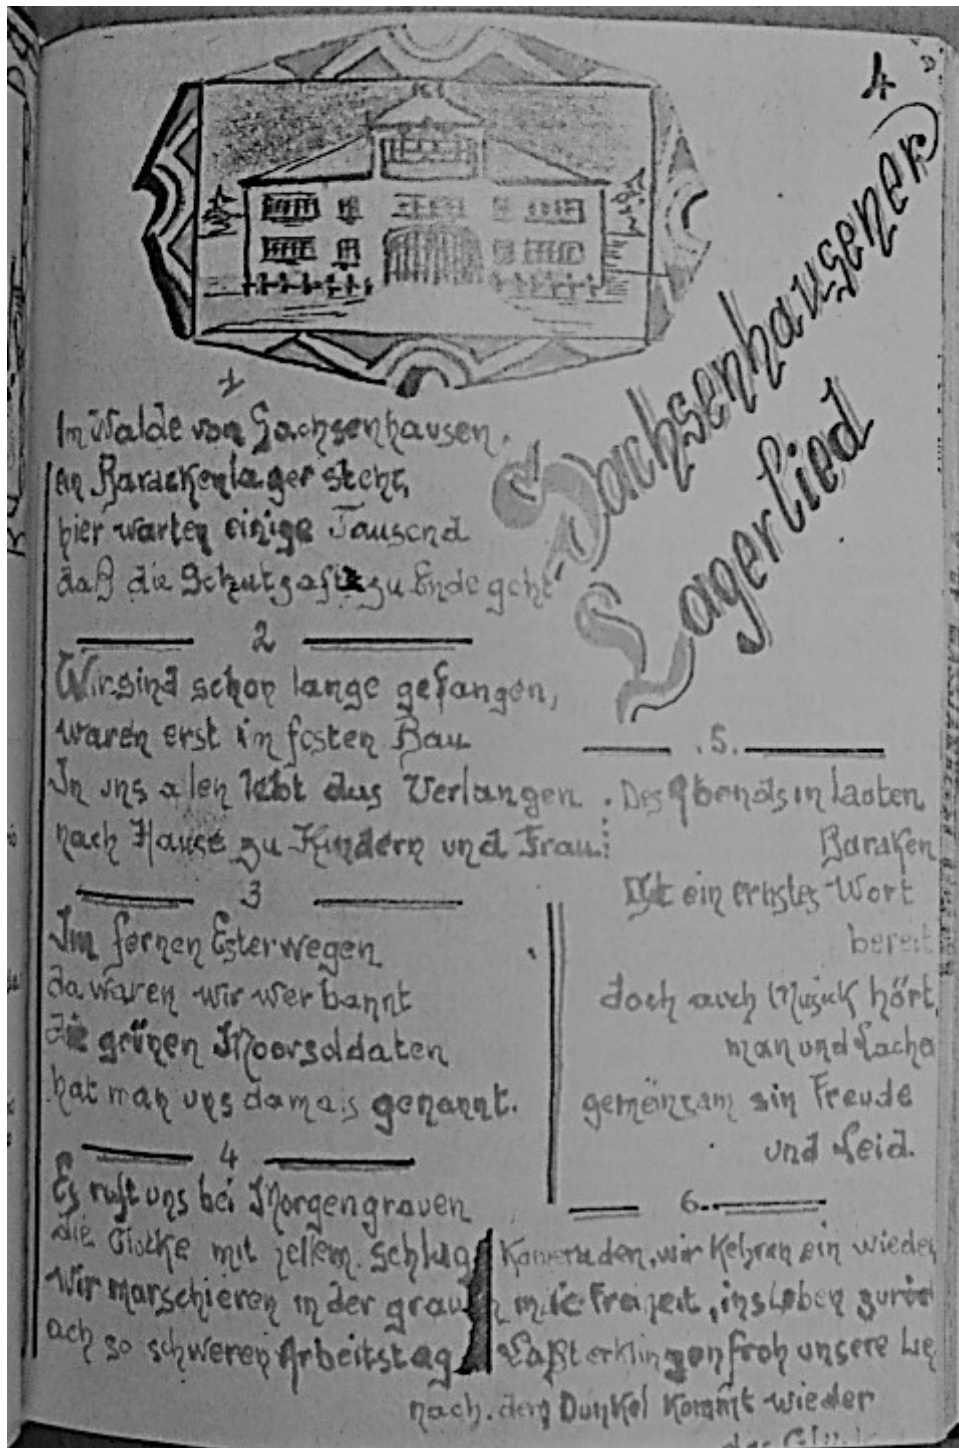 4
Sachsenhausener
Lagerlied
1
Im Walde von Sachsenhausen,
ein Barackenlager steht,
hier warten einige Tausend
daß die Schutzhaft zu Ende geht
2
Wir sind schon lange gefangen,
waren erst im festen Bau
In uns allen lebt das Verlangen
nach Hause zu Kindern und Frau.
3
Im fernen Esterwegen
da waren wir verbannt
die grünen Moorsoldaten
hat man uns damals genannt.
4
Es ruft uns bei Morgengrauen
die Glocke mit hellem Schlag
Wir marschieren in der grauen
ach so schweren Arbeitstag
.5.
Des Abends in lauten
Baraken
Ist ein ernstes Wort
bereit
doch auch Musick hört
man und Lache
gemeinsam sin Freude
und Leid.
6.
Kameraden, wir kehren ein wieder
in die Freiheit, ins Leben zurück
Laßt erklingen froh unsere Lie
nach dem Dunkel kommt wieder
das Glück